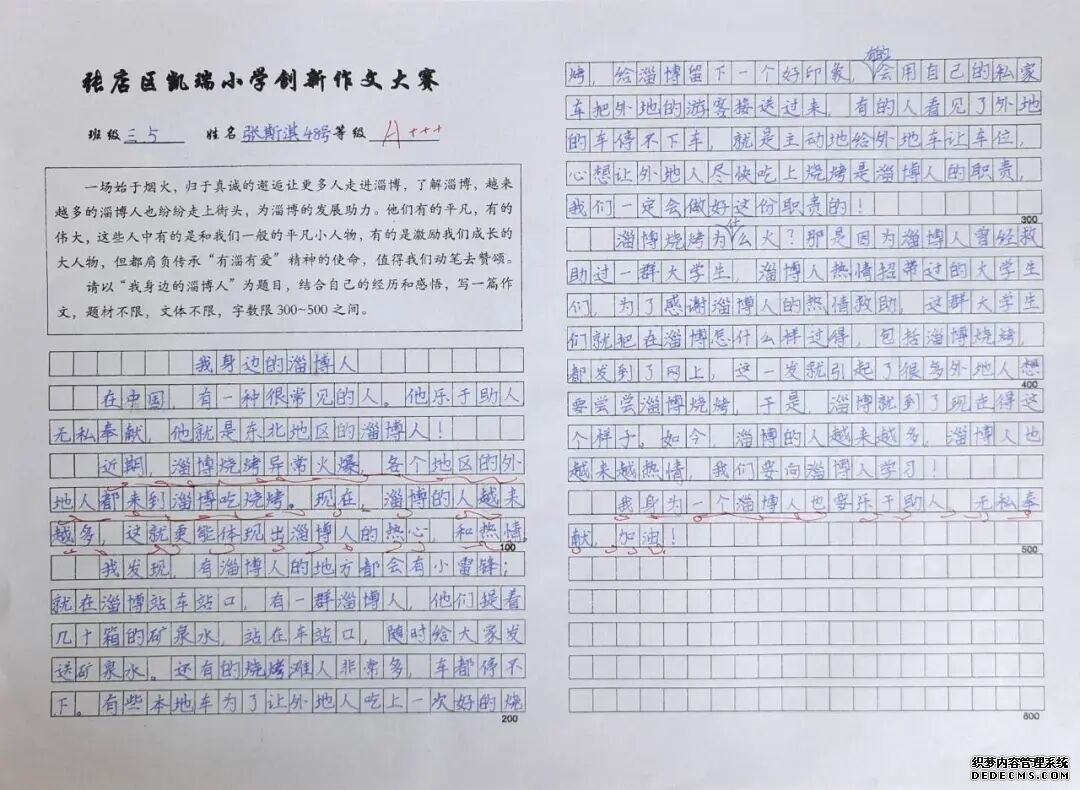 张店区凯瑞小学创新作文大赛
班级三5 姓名张斯淇48号等级A+++
一场始于烟火，归于真诚的邂逅让更多人走进淄博，了解淄博，越来
越多的淄博人也纷纷走上街头，为淄博的发展助力。他们有的平凡，有的
伟大，这些人中有的是和我们一般的平凡小人物，有的是激励我们成长的
大人物，但都肩负传承“有淄有爱”精神的使命，值得我们动笔去赞颂。
请以“我身边的淄博人”为题目，结合自己的经历和感悟，写一篇作
文，题材不限，文体不限，字数限300~500之间。
我身边的淄博人
在中国，有一种很常见的人。他乐于助人
无私奉献，他就是东北地区的淄博人！
近期，淄博烧烤异常火爆，各个地区的外
地人都来到淄博吃烧烤。现在，淄博的人越来
越多，这就更能体现出淄博人的热心，和热情。
100
我发现，有淄博人的地方都会有小雷锋；
就在淄博站车站口，有一群淄博人，他们提着
几十箱的矿泉水，站在车站口，随时给大家发
送矿泉水。还有的烧烤滩人非常多，车都停不
下。有些本地车为了让外地人吃上一次好的烧
200
烤，给淄博留下一个好印象，有的会用自己的私家
车把外地的游客接送过来，有的人看见了外地
的车停不下车，就是主动地给外地车让车位，
心想让外地人尽快吃上烧烤是淄博人的职责，
我们一定会做好这份职责的！
300
淄博烧烤为什么火？那是因为淄博人曾经救
助过一群大学生，淄博人热情招带过的大学生
们，为了感谢淄博人的热情救助，这群大学生
们就把在淄博怎什么样过得，包括淄博烧烤，
都发到了网上，这一发就引起了很多外地人想
400
要尝尝淄博烧烤，于是，淄博就到了现在得这
个样子。如今，淄博的人越来越多，淄博人也
越来越热情，我们要向淄博人学习！
我身为一个淄博人也要乐于助人，无私奉
献，加油！
500
600
织梦内容管理系统
DEDECMS.COM